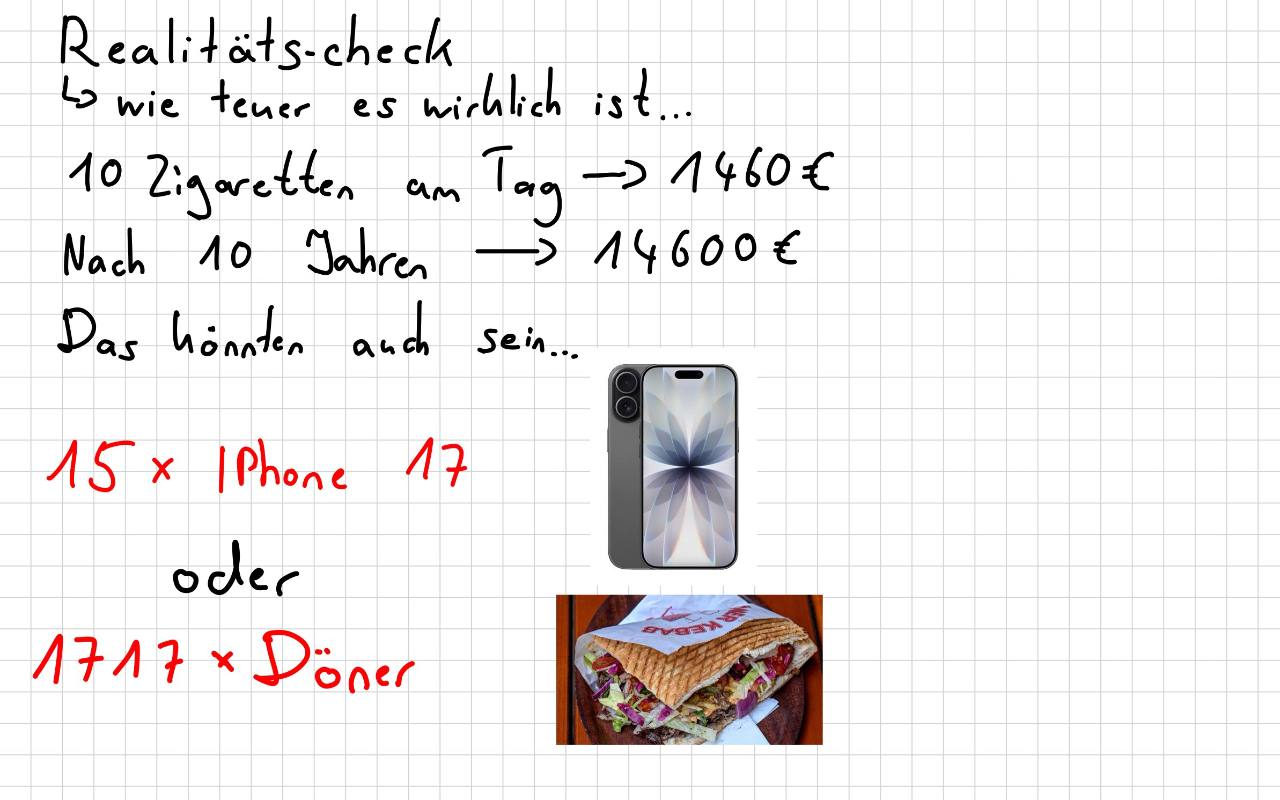 Realitäts-check
↳ wie teuer es wirklich ist...
10 Zigaretten am Tag → 1460€
Nach 10 Jahren → 14600€
Das könnten auch sein...
15 x IPhone 17
oder
1717 x Döner
KEBAB